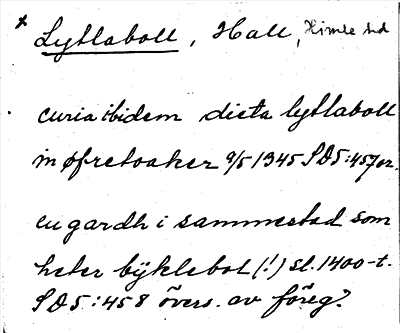 x Lytlaboll, Hall, Himle hd
curia ibidem dicta lytlaboll
in øfretoaker 9/5 1345 SD 5:457 or.
eu gardh i sammestad som
heter byklebol (!) sl. 1400-t.
SD 5:458 övers. av föreg.